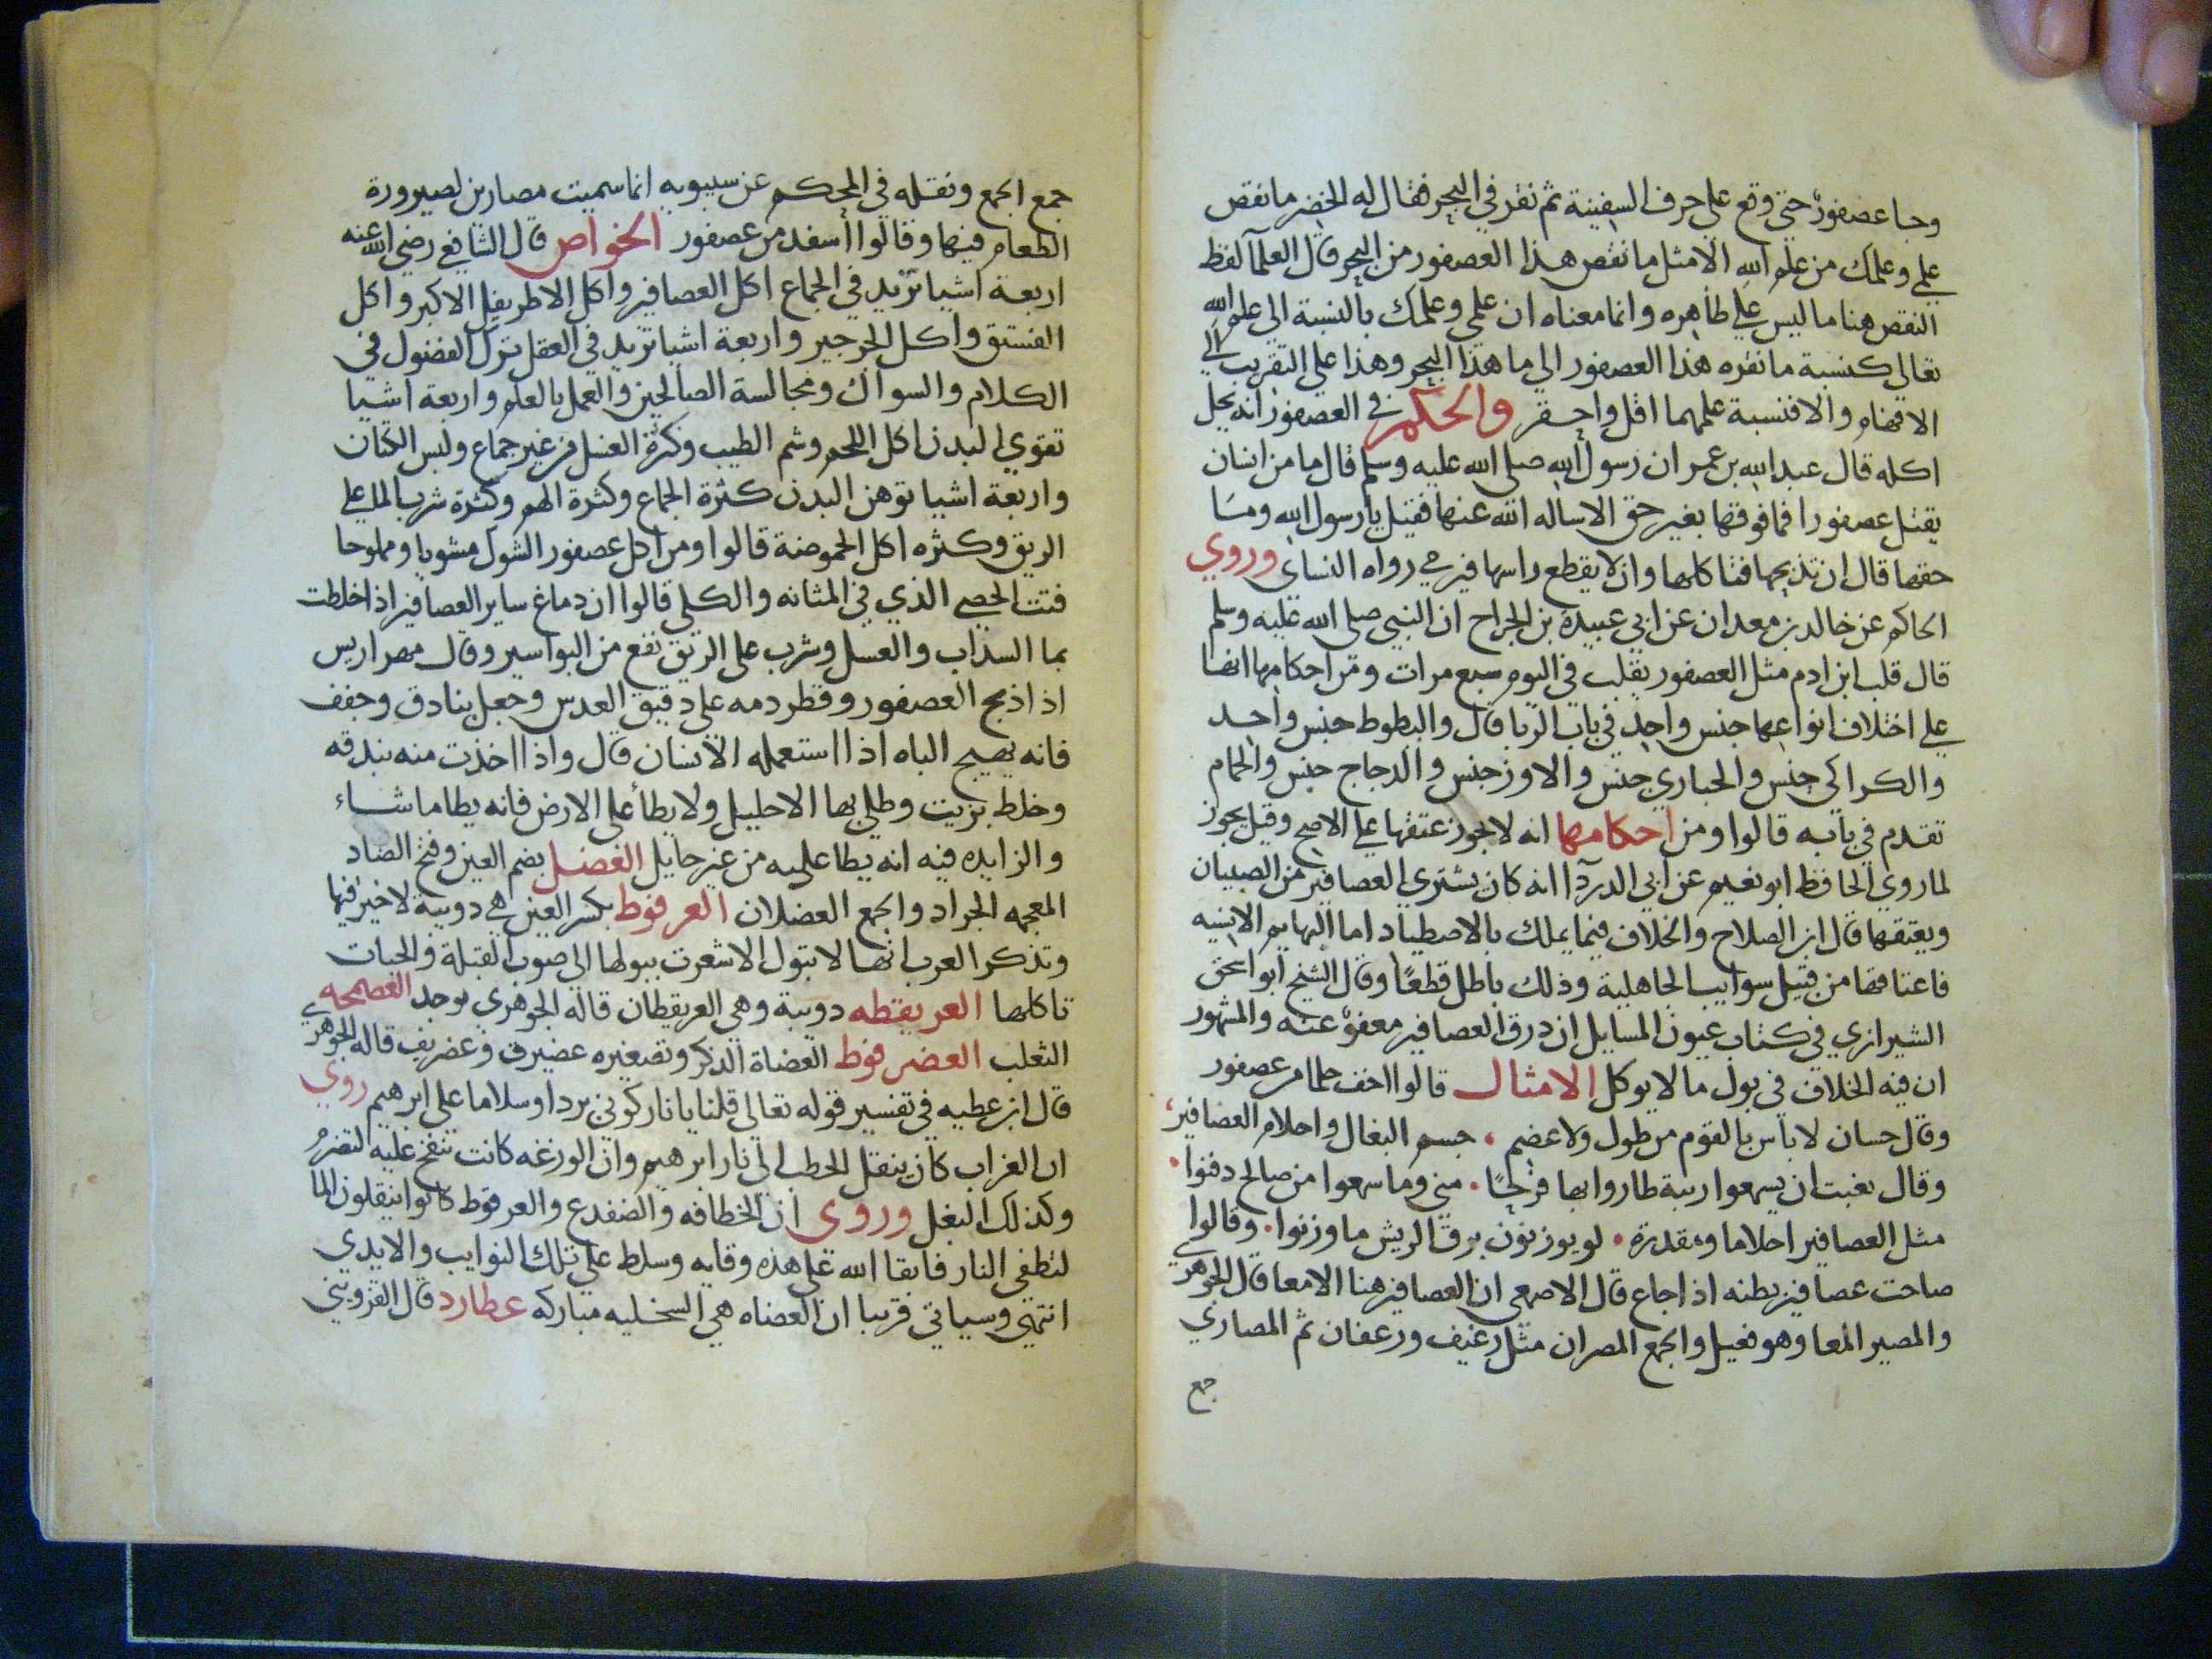 وجا عصفور حتى وقع على حرف السفينة ثم نقر في البحر فقال له الخضر ما نقص
علمي وعلمك من علم الله الا مثل ما نقص هذا العصفور من البحر قال العلما لفظ
النقص هنا ما ليس على ظاهره وانما معناه ان علمي وعلمك بالنسبة الى علم الله
تعالى كنسبة ما نقره هذا العصفور الى ما هذا البحر وهذا على التقريب الى
الافهام والا فنسبة علمهما اقل واحقر والحكم في العصفور انه يحل
اكله قال عبد الله بن عمر ان رسول الله صلى الله عليه وسلم قال ما من انسان
يقتل عصفورا فما فوقها بغير حق الا ساله الله عنها فقيل يا رسول الله وما
حقها قال ان تذبحها فتاكلها وان لا يقطع راسها فيرمي رواه النساى وروي
الحاكم عن خالد بن معدان عن ابي عبيدة بن الجراح ان النبي صلى الله عليه وسلم
قال قلب ابن ادم مثل العصفور يقلب في اليوم سبع مرات ومن احكامها انها
على اختلاف انواعها جنس واحد في باب الربا قال والبطوط جنس واحد
والكراكى جنس والحباري جنس والاوز جنس والدجاج جنس والحمام
تقدم في بابه قالوا ومن احكامها انه لا يجوز عتقها على الاصح وقيل يجوز
لما روى الحافظ ابو نعيم عن ابي الدردا انه كان يشتري العصافير من الصبيان
ويعتقها قال ابن الصلاح والخلاف فيما يملك بالاصطياد اما البهايم الانسيه
فاعتاقها من قبيل سوايب الجاهلية وذلك باطل قطعًا وقال الشيخ ابو اسحق
الشيرازي في كتاب عيون المسايل ان ذرق العصافير معفو عنه والمشهور
ان فيه الخلاف في بول ما لا يوكل الامثال قالوا اخف حلما من عصفور
وقال حسان لا باس بالقوم من طول ولا عضم • جسم البغال واحلام العصافير
وقال نعبت ان يسمعوا ريبة طاروا بها فرحًا • مني وما سمعوا من صالح دفنوا •
مثل العصافير احلاما ومقدرة • لو يوزنون بزق الريش ما وزنوا • وقالوا
صاحت عصافير بطنه اذا جاع قال الاصمعي ان العصافير هنا الامعا قال الجوهري
والمصير المعا وهو فعيل والجمع المصران مثل رغيف ورغفان ثم المصاري
جمع
جمع الجمع ونقله في المحكم عن سيبويه انما سميت مصارين لصيرورة
الطعام فيها وقالوا أسفد من عصفور الخواص قال الشافعي رضي الله عنه
اربعة اشيا تزيد في الجماع اكل العصافير واكل الاطريفل الاكبر واكل
الفستق واكل الجرجير واربعة اشيا تزيد في العقل ترك الفضول في
الكلام والسواك ومجالسة الصالحين والعمل بالعلم واربعة اشيا
تقوي البدن اكل اللحم وشم الطيب وكثرة الغسل من غير جماع ولبس الكتان
واربعة اشيا توهن البدن كثرة الجماع وكثرة الهم وكثرة شرب الما على
الريق وكثره اكل الحموضة قالوا ومن اكل عصفور الشوك مشويا ومملوحا
فتت الحصى الذي في المثانه والكلى قالوا ان دماغ ساير العصافير اذا خلطت
بما السذاب والعسل وشرب على الريق نفع من البواسير وقال مهراريس
اذا ذبح العصفور وقطر دمه على دقيق العدس وجعل بنادق وجفف
فانه يهيج الباه اذا استعمله الانسان قال واذا اخذت منه بندقه
وخلط بزيت وطلي بها الاحليل ولا يطأ على الارض فانه يطا ما شاء
والزايده فيه انه يطا عليه من غير حايل العضل بضم العين وفتح الضاد
المعجمه الجراد والجمع العضلان العرفوط بكسر العين هي دويبة لا خير فيها
وتذكر العرب انها لا تبول الا شغرت ببولها الى صوب القبلة والحيات
تاكلها العريقطه دويبة وهي العريقطان قاله الجوهرى
الثعلب العضرفوط العضاة الذكر وتصغيره عضيرف وعضريف قاله الجوهري
قال ابن عطيه في تفسير قوله تعالى قلنا يا نار كوني بردا وسلاما على ابرهيم روي
ان الغراب كان ينقل الحطب الى نار ابرهيم وان الوزغه كانت تنفخ عليه لتضرم
وكذلك البغل وروى ان الخطافه والضفدع والعرفوط كانوا ينقلون الما
لتطفي النار فابقا الله على هذه وقايه وسلط على تلك النوايب والايدي
انتهى وسياتي قريبا ان العضاه هي السخليه مباركه عطارد قال القزويني